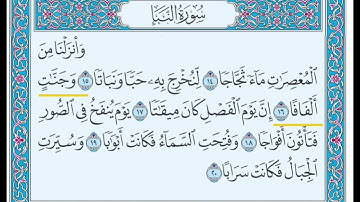 سُورَةُ النَّبَإِ
وَأَنزَلْنَا مِنَ
الْمُعْصِرَٰتِ مَآءً ثَجَّاجًا ١٤ لِّنُخْرِجَ بِهِۦ حَبًّا وَنَبَاتًا ١٥ وَجَنَّٰتٍ
أَلْفَافًا ١٦ إِنَّ يَوْمَ الْفَصْلِ كَانَ مِيقَٰتًا ١٧ يَوْمَ يُنفَخُ فِى الصُّورِ
فَتَأْتُونَ أَفْوَاجًا ١٨ وَفُتِحَتِ السَّمَآءُ فَكَانَتْ أَبْوَٰبًا ١٩ وَسُيِّرَتِ
الْجِبَالُ فَكَانَتْ سَرَابًا ٢٠